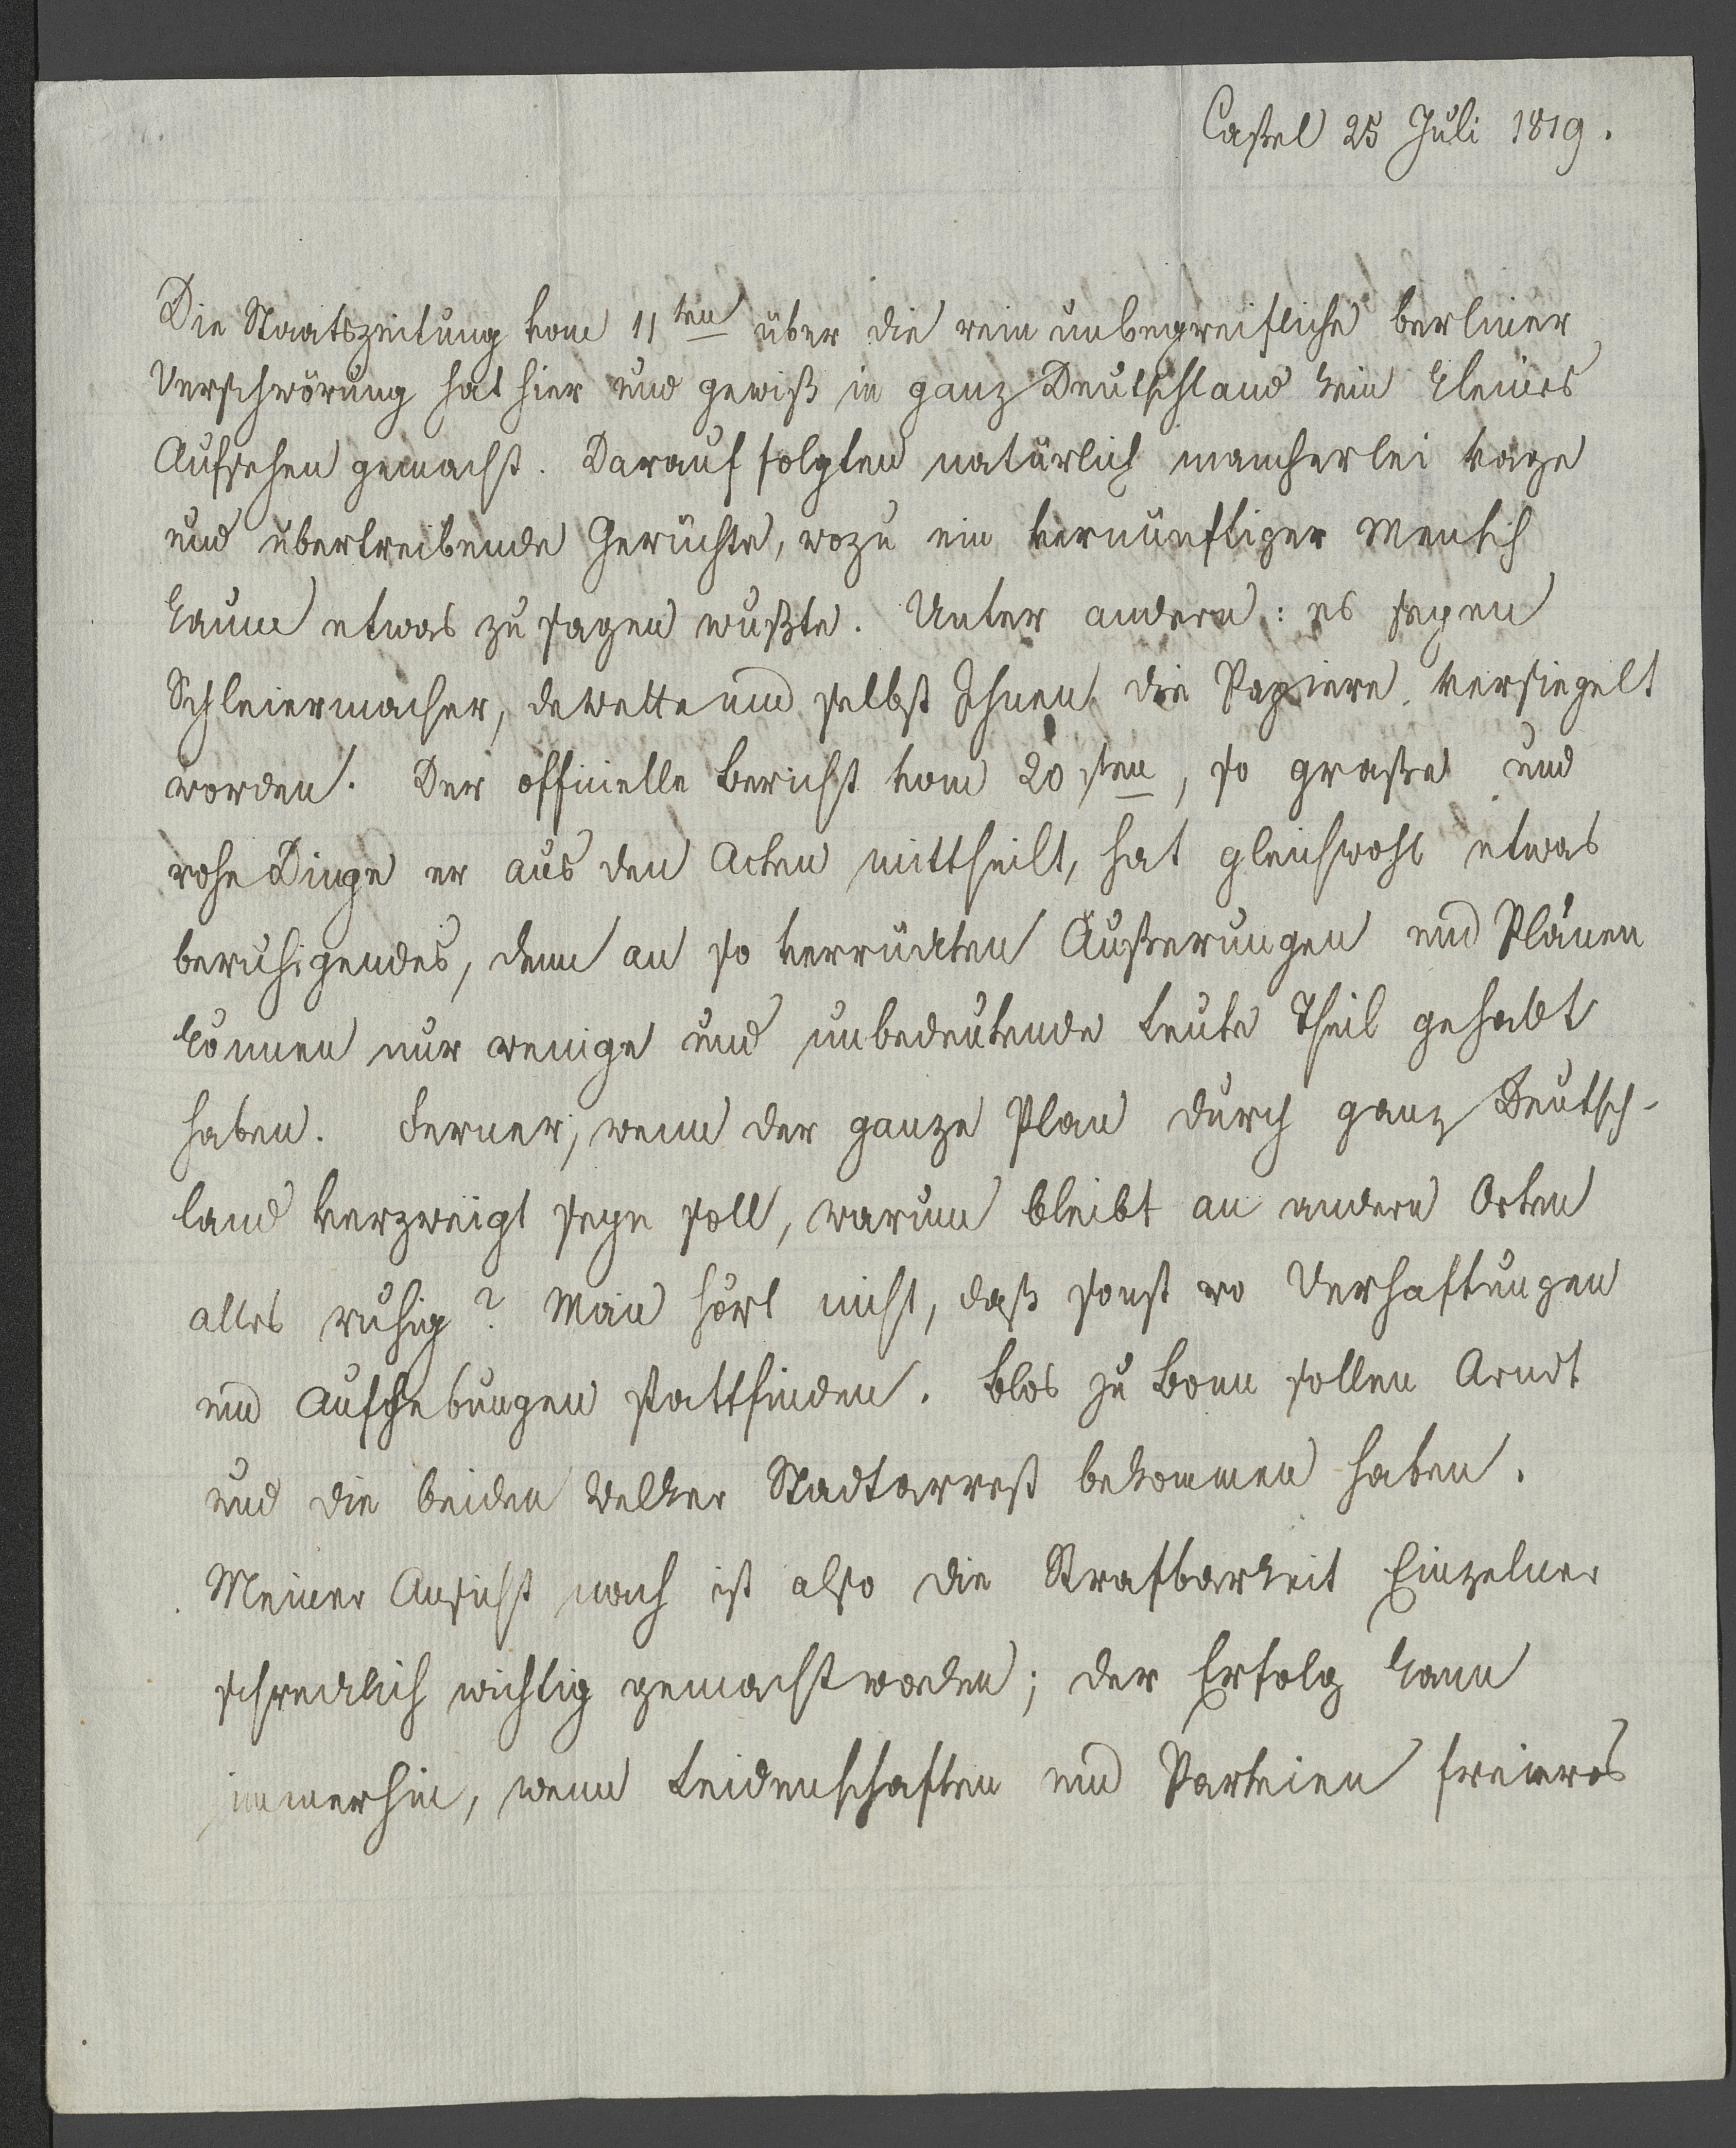 Cassel 25 Juli 1819.
Die Staatszeitung vom 11ten über die rein unbegreifliche berliner
Verschwörung hat hier und gewiß in ganz Deutschland kein kleines
Aufsehen gemacht. Darauf folgten natürlich mancherlei vage
und übertreibende Gerüchte, wozu ein vernünftiger Mensch
kaum etwas zu sagen wußte. Unter andern: es seyen
Schleiermacher, dewette und selbst Ihnen die Papiere versiegelt
worden. Der officielle Bericht vom 20sten, so grasse und
rohe Dinge er aus den Acten mittheilt, hat gleichwohl etwas
beruhigendes, denn an so verrückten Äußerungen und Plänen
können nur wenige und unbedeutende Leute Theil gehabt
haben. Ferner, wenn der ganze Plan durch ganz Deutsch-
land verzweigt seyn soll, warum bleibt an andern Orten
alles ruhig? Man hört nicht, daß sonst wo Verhaftungen
und Aufhebungen stattfinden. Blos zu Bonn sollen Arndt
und die beiden Welker Stadtarrest bekommen haben.
Meiner Ansicht nach ist also die Strafbarkeit Einzelner
schrecklich wichtig gemacht worden; der Erfolg kann
immerhin, wenn Leidenschaften und Parteien freieres